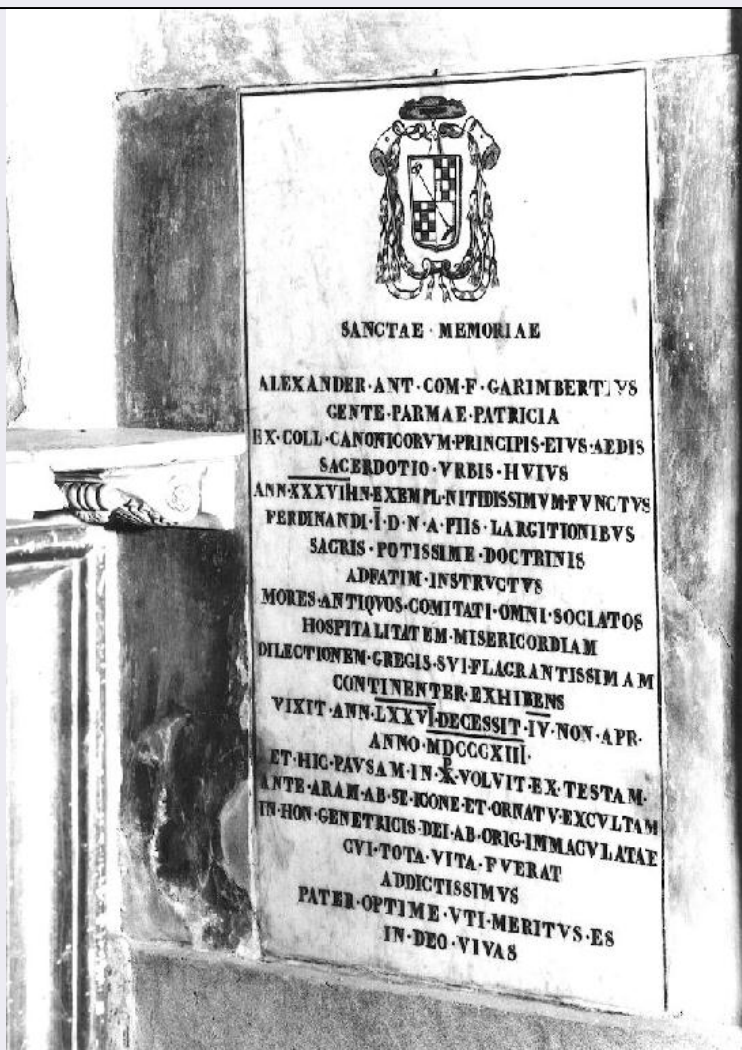 SANCTAE · MEMORIAE
ALEXANDER · ANT · COM · F · GARIMBERTIVS
GENTE · PARMAE · PATRICIA
EX · COLL · CANONICORVM · PRINCIPIS · EIVS · AEDIS
SACERDOTIO · VRBIS · HVIVS
ANN · XXXVII · IN · EXEMPL · NITIDISSIMVM · FVNCTVS
FERDINANDI · I · D · N · A · PIIS · LARGITIONIBVS
SACRIS · POTISSIME · DOCTRINIS
ADFATIM · INSTRVCTVS
MORES · ANTIQVOS · COMITATI · OMNI · SOCIATOS
HOSPITALITATEM · MISERICORDIAM
DILECTIONEM · GREGIS · SVI · FLAGRANTISSIMAM
CONTINENTER · EXHIBENS
VIXIT · ANN · LXXVI · DECESSIT · IV · NON · APR ·
ANNO · MDCCCXIII ·
ET · HIC · PAVSAM · IN · ☧ · VOLVIT · EX · TESTAM ·
ANTE · ARAM · AB · SE · ICONE · ET · ORNATV · EXCVLTAM
IN · HON · GENETRICIS · DEI · AB · ORIG · IMMACVLATAE
CVI · TOTA · VITA · FVERAT
ADDICTISSIMVS
PATER · OPTIME · VTI · MERITVS · ES
IN · DEO · VIVAS